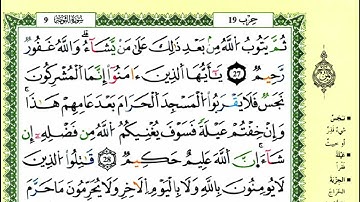 9 سُورَةُ التَّوْبَةِ حِزْب 19
ثُمَّ يَتُوبُ اللَّهُ مِنۢ بَعْدِ ذَٰلِكَ عَلَىٰ مَن يَشَآءُ ۗ وَاللَّهُ غَفُورٌ
رَّحِيمٌ 27 يَـٰٓأَيُّهَا الَّذِينَ ءَامَنُوٓا۟ إِنَّمَا الْمُشْرِكُونَ
نَجَسٌ فَلَا يَقْرَبُوا۟ الْمَسْجِدَ الْحَرَامَ بَعْدَ عَامِهِمْ هَـٰذَا ۚ
وَإِنْ خِفْتُمْ عَيْلَةً فَسَوْفَ يُغْنِيكُمُ اللَّهُ مِن فَضْلِهِۦٓ إِن
شَآءَ ۚ إِنَّ اللَّهَ عَلِيمٌ حَكِيمٌ 28 قَـٰتِلُوا۟ الَّذِينَ
لَا يُؤْمِنُونَ بِاللَّهِ وَلَا بِالْيَوْمِ الْـَٔاخِرِ وَلَا يُحَرِّمُونَ مَا حَرَّمَ
نَجَسٌ
عَيْلَةً
فَقْرًا
الْجِزْيَةَ